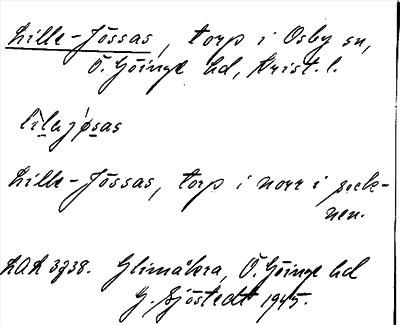 Lille-Jössas, torp i Osby sn,
Ö. Göinge hd, Krist. l.
lìlajǿsas
Lille-Jössas, torp i norr i sock-
nen.
LAL 3738. Glimåkra, Ö. Göinge hd
G. Sjöstedt 1945.